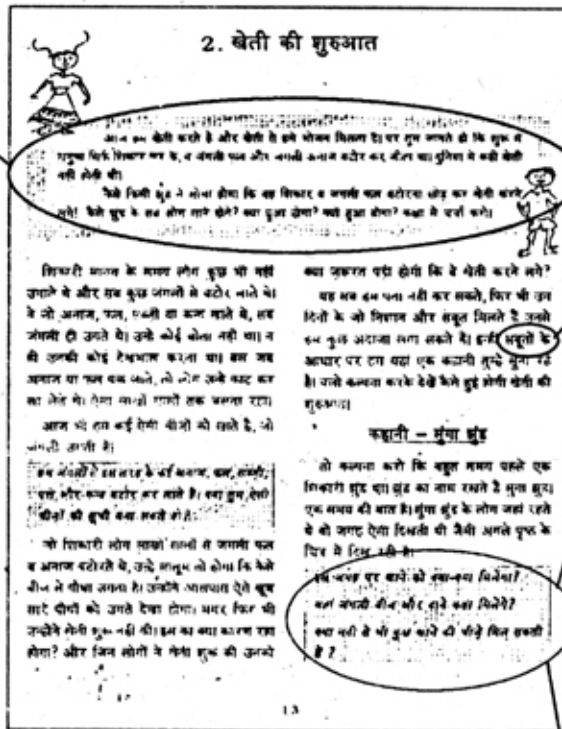 2. खेती की शुरुआत
आज हम खेती करते है और खेती से हमे भोजन मिलता है। पर तुम जानते हो कि शुरू मे
मनुष्य सिर्फ शिकार कर के, व जंगली फल और जंगली अनाज बटोर कर जीता था। दुनिया मे कही खेती
नही होती थी।
कैसे किसी झुंड ने सोचा होगा कि वह शिकार व जंगली फल बटोरना छोड़ कर खेती करने
लगे! कैसे झुंड के सब लोग माने होगे? क्या हुआ होगा? क्यो हुआ होगा? कक्षा मे चर्चा करो।
शिकारी मानव के समय लोग कुछ भी नही
उगाते थे और सब कुछ जंगलो से बटोर लाते थे।
वे जो अनाज, फल, सब्जी या कन्द खाते थे, सब
जंगली ही उगते थे। उन्हे कोई बोता नही था। न
ही उनकी कोई देखभाल करता था। बस जब
अनाज या फल पक जाते, तो लोग उन्हे काट कर
खा लेते थे। ऐसा लाखों सालों तक चलता रहा।
आज भी हम कई ऐसी चीजों को खाते है, जो
जंगली उगती है।
हम जंगलो से इस तरह के कई अनाज, फल, सब्जी,
पत्ते, और कन्द बटोर कर लाते है। क्या तुम ऐसी
चीज़ों की सूची बना सकते हो?
जो शिकारी लोग लाखों सालों से जंगली फल
व अनाज बटोरते थे, उन्हे मालूम तो होगा कि कैसे
बीज से पौधा उगता है। उन्होंने आसपास ऐसे खूब
सारे पौधों को उगते देखा होगा। मगर फिर भी
उन्होंने खेती शुरू नही की। इस का क्या कारण रहा
होगा? और जिन लोगों ने खेती शुरू की उनको
क्या ज़रूरत पड़ी होगी कि वे खेती करने लगे?
यह सब हम पता नही कर सकते, फिर भी उन
दिनों के जो निशान और सबूत मिलते है उनसे
हम कुछ अंदाजा लगा सकते है। इन्ही सबूतों के
आधार पर हम यहां एक कहानी तुम्हे सुना रहे
है। उसे कल्पना करके देखें कैसे हुई होगी खेती की
शुरूआत।
कहानी - मुंगा झुंड
तो कल्पना करो कि बहुत समय पहले एक
शिकारी झुंड था। झुंड का नाम रखते है मुंगा झुंड।
एक समय की बात है। मुंगा झुंड के लोग जहां रहते
थे वो जगह ऐसी दिखती थी जैसी अगले पृष्ठ के
चित्र मे दिख रही है।
इस जगह पर खाने को क्या-क्या मिलेगा?
यहां जंगली बीज और दाने कहां मिलेंगे?
क्या नदी से भी कुछ खाने की चीज़ें मिल सकती
है?
13